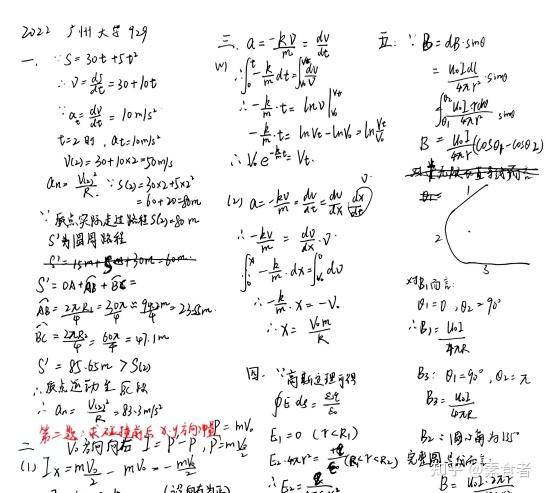 2022 广州大学 929
一、 ∵ S = 30t + 5t²
∴ v = ds/dt = 30 + 10t
∴ at = dv/dt = 10m/s²
t = 2时, at = 10m/s²
V(2) = 30 + 10×2 = 50m/s
an = V(2)²/R ∵ S(2) = 30×2 + 5×2²
= 60 + 20 = 80m
∵ 质点实际走过路程 S(2) = 80m
S'为圆周路程
S' = 15m + 5m + 30m = 60m.
S' = OA + AB + BC =
AB = 2πR₁/4 = 30π/4 = 94.2m/4 = 23.55m
BC = 2πR₂/4 = 60π/4 = 47.1m
S' = 85.65m > S(2)
∴ 质点运动至BC段
∴ an = V(2)²/R = 83.3m/s²
第二题:求碰撞前后x,y方向冲量
二 V₀方向向右 I = P' - P, P = mV₀
(1) Ix = mV₀/2 - mV₀ = -mV₀/2
三、 a = -kv/m = dv/dt
(1) ∴ ∫₀ᵗ -k/m dt = ∫ dv/v
∴ -k/m · t = ln v |
-k/m · t = ln Vt - ln V₀ = ln Vt/V₀
∴ V₀e^(-k/m t) = Vt.
(2) a = -kv/m = dv/dt = dv/dx · dx/dt v
∴ -kv/m = dv/dx · v
∴ ∫₀ˣ -k/m · dx = ∫ dv
∴ -k/m · x = -V₀
∴ x = V₀m/k
四. ∵ 高斯定理可得
∮E ds = εq/ε₀
E₁ = 0 (r < R₁)
E₂·4πr² = (R₁<r<R₂)
∴ E₂ =
五: ∵ B = dB·sinθ
= u₀Idl/4πr² · sinθ
∫ u₀I rdθ/4πr² sinθ
B = u₀I/4πr (cosθ₁ - cosθ₂)
1
2
3
对B₁而言:
θ₁ = 0, θ₂ = 90°
∴ B₁ = u₀I/4πR
B₃: θ₁ = 90°, θ₂ = π
B₃ = u₀I/4πR
B₂: 圆心角为135°
完整圆
知乎 @素食者